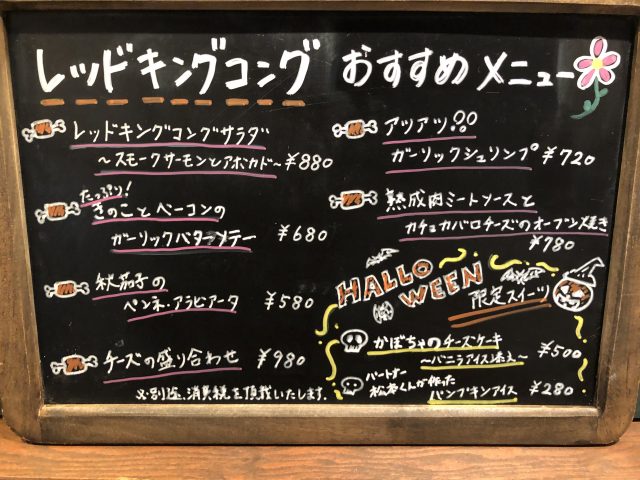 レッドキングコング おすすめメニュー
レッドキングコングサラダ
〜スモークサーモンとアボカド〜 ¥880
たっぷり!
きのことベーコンの
ガーリックバターソテー ¥680
秋茄子の
ペンネ・アラビアータ ¥580
チーズの盛り合わせ ¥980
※別途、消費税を頂戴いたします。
アツアツ!!
ガーリックシュリンプ ¥720
熟成肉ミートソースと
カチョカバロチーズのオーブン焼き
¥780
HALLO
WEEN
限定スイーツ
かぼちゃのチーズケーキ
〜バニラアイス添え〜 ¥500
パートナー
松本くんが作った
パンプキンアイス ¥280